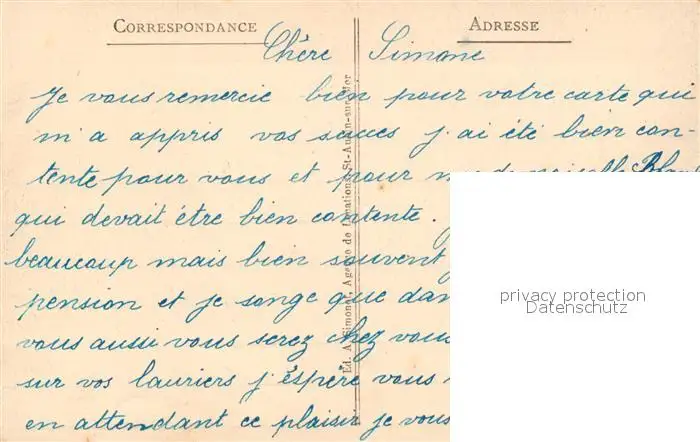 CORRESPONDANCE
ADRESSE
Chère Simone
Je vous remercie bien pour votre carte qui
m'a appris vos succes j'ai été bien con-
tente pour vous et pour
qui devait être bien contente.
beaucoup mais bien souvent
pension et je songe que dan
vous aussi vous serez chez vous
sur vos lauriers j'éspère vous
en attendant ce plaisir je vous
Ed. A. Simonet, Agence de Locations, St-Aubin-sur-Mer
privacy protection
Datenschutz